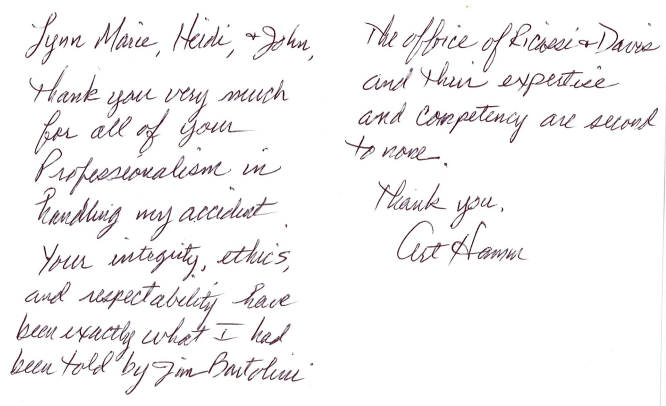 Lynn Marie, Heidi, + John,
Thank you very much
for all of your
Professionalism in
handling my accident.
Your integrity, ethics,
and respectability have
been exactly what I had
been told by Jim Bartolini.
The office of Ricossi + Davis
and their expertise
and competency are second
to none.
Thank you,
Art Hamm